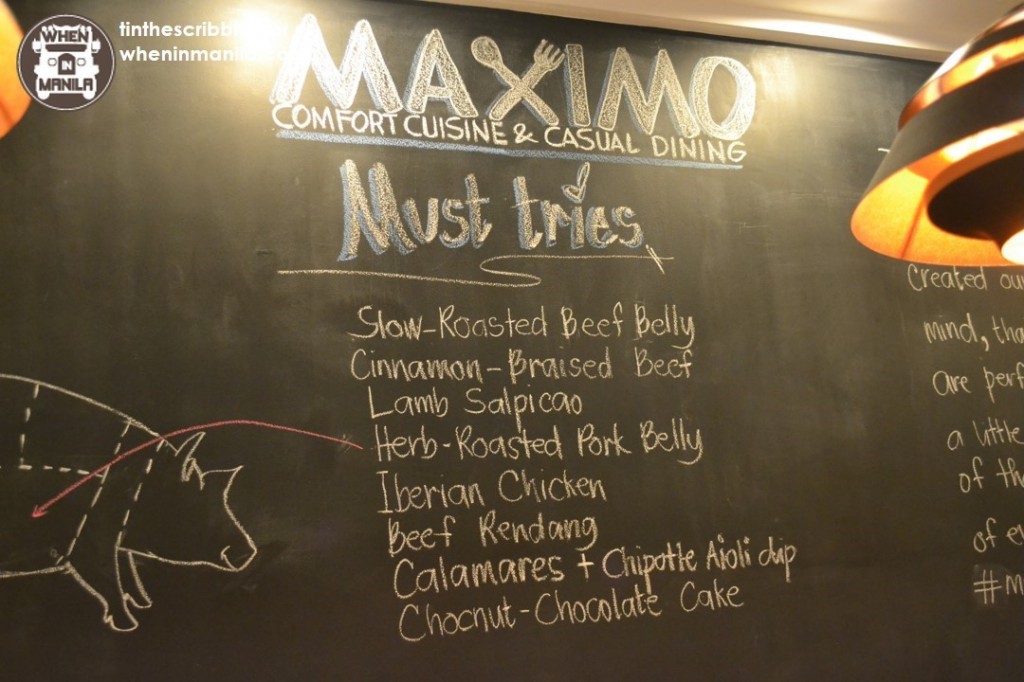 WHEN
IN
MANILA
MAXIMO
COMFORT CUISINE & CASUAL DINING
Must tries
Slow-Roasted Beef Belly
Cinnamon-Braised Beef
Lamb Salpicao
Herb-Roasted Pork Belly
Iberian Chicken
Beef Rendang
Calamares + Chipotle Aioli dip
Chocnut-Chocolate Cake
Created
mind,
are
a little
of
of